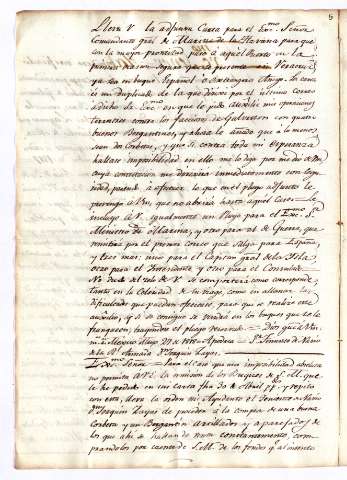 5
Lleva V. la adjunta Carta para el Exmo. Señor
Comandante gral. de Marina de la Havana para que
con la mayor prontitud pase à aquel Puerto en la
primera ocasion segura que se presente en Veracruz
ya sea en buque Español ò Extrangero Amigo.
es un duplicado de la que dirijo por el ultimo correo
à dicho Sr. Exmo. en que le pido auxilie mis operaciones
terrestres contra los facciosos de Galveston con quatro
buenos Bergantines, y ahora le añado que à lo menos
sean dos Corbetas, y que si, contra toda mi esperanza
hallase imposibilidad en ello me lo diga por medio de V.
cuya contextacion me dirigirá inmediatamente con segu-
ridad,
prevengo à V. que no abrirá hasta aquel caso:
incluyo à V. igualmente un Pliego para el Exmo. Sr.
Ministro de Marina, y otro para el de Guerra, que
remitirá por el primer correo que salga para España,
y tres mas; uno para el Capitan gral. de la Isla
otro para el Intendente y otro para el Consulado.
No dudo del zelo de V. se comportará como corresponde
tanto en la celeridad de su viage, como en allanar las
dificultades que puedan ofrecerse, para que se realize este
auxilio, y si se consigue se vendrá en los buques que se le
franqueen, trayendose el pliego reservado. = Dios guè. à V. ms.
as. Mexico Mayo 27 de 1818. = Apodaca = Sr. Teniente de Navio
de la Rl. Armada Dn. Joaquin Layas.
Exmo. Señor = Para el caso que una imposibilidad absoluta
no permita à V.E. la remision de los Buques de S.M. que
le he pedido en mi carta fha 30 de Abril pp. y repito
con esta, lleva la orden mi Ayudante el Teniente de Navio
Dn. Joaquin Layas de proceder à la compra de una buena
Corbeta y un Bergantin Artillados y aparejados de
los que ahi se hallan de venta constantemente, com-
prandolos por cuenta de S.M. de los fondos qe. al intento